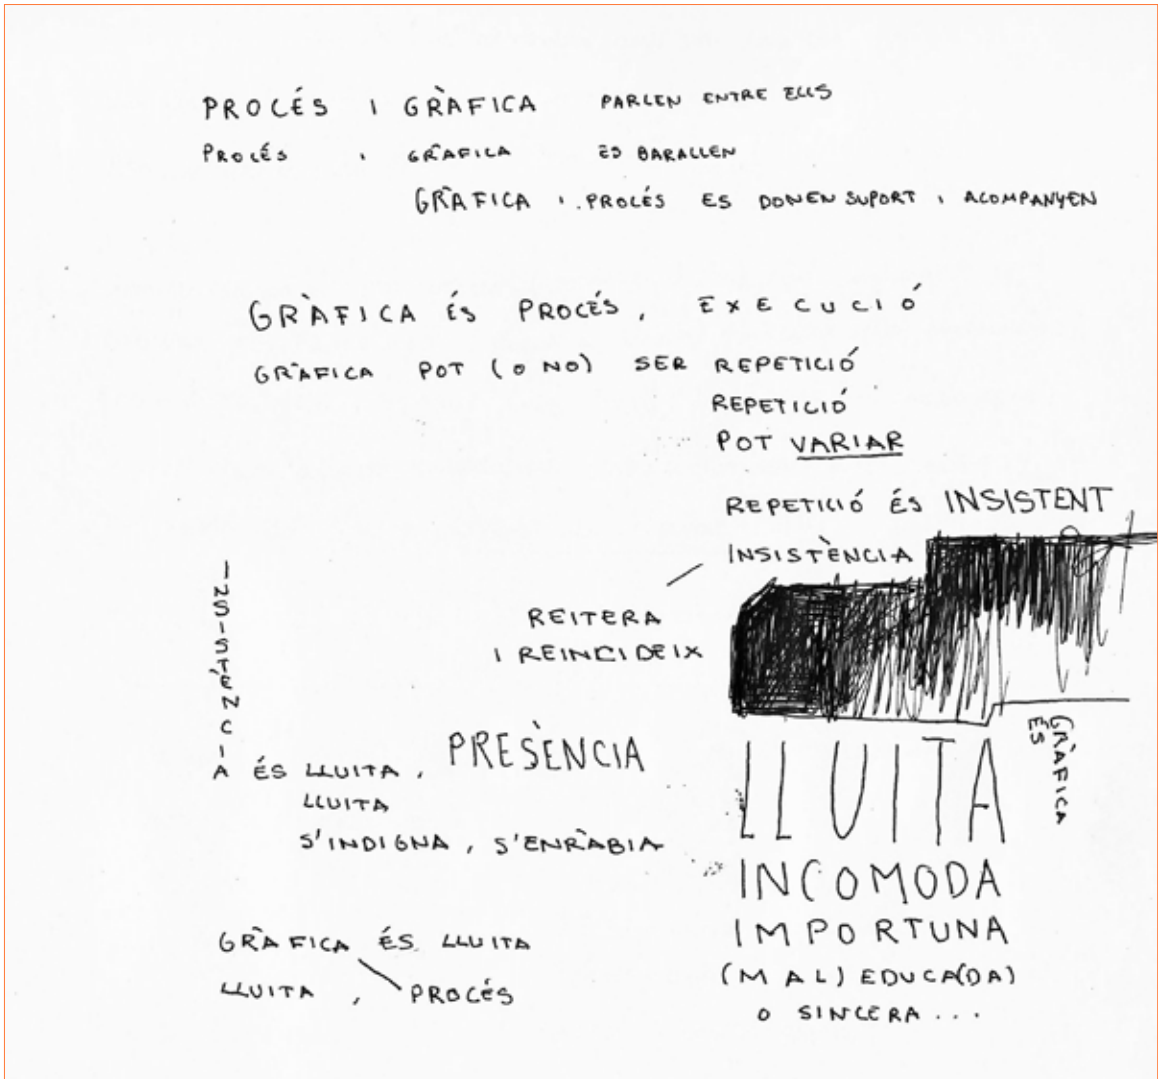 PROCÉS I GRÀFICA PARLEN ENTRE ELLS
PROCÉS I GRÀFICA ES BARALLEN
GRÀFICA I PROCÉS ES DONEN SUPORT I ACOMPANYEN
GRÀFICA ÉS PROCÉS, EXECUCIÓ
GRÀFICA POT (O NO) SER REPETICIÓ
REPETICIÓ
POT VARIAR
REPETICIÓ ÉS INSISTENT
INSISTÈNCIA
REITERA
I REINCIDEIX
INSISTÈNCIA
ÉS LLUITA, PRESÈNCIA
LLUITA
S'INDIGNA, S'ENRÀBIA
GRÀFICA
ÉS
LLUITA
INCOMODA
IMPORTUNA
(MAL) EDUCA(DA)
O SINCERA...
GRÀFICA ÉS LLUITA
LLUITA, PROCÉS